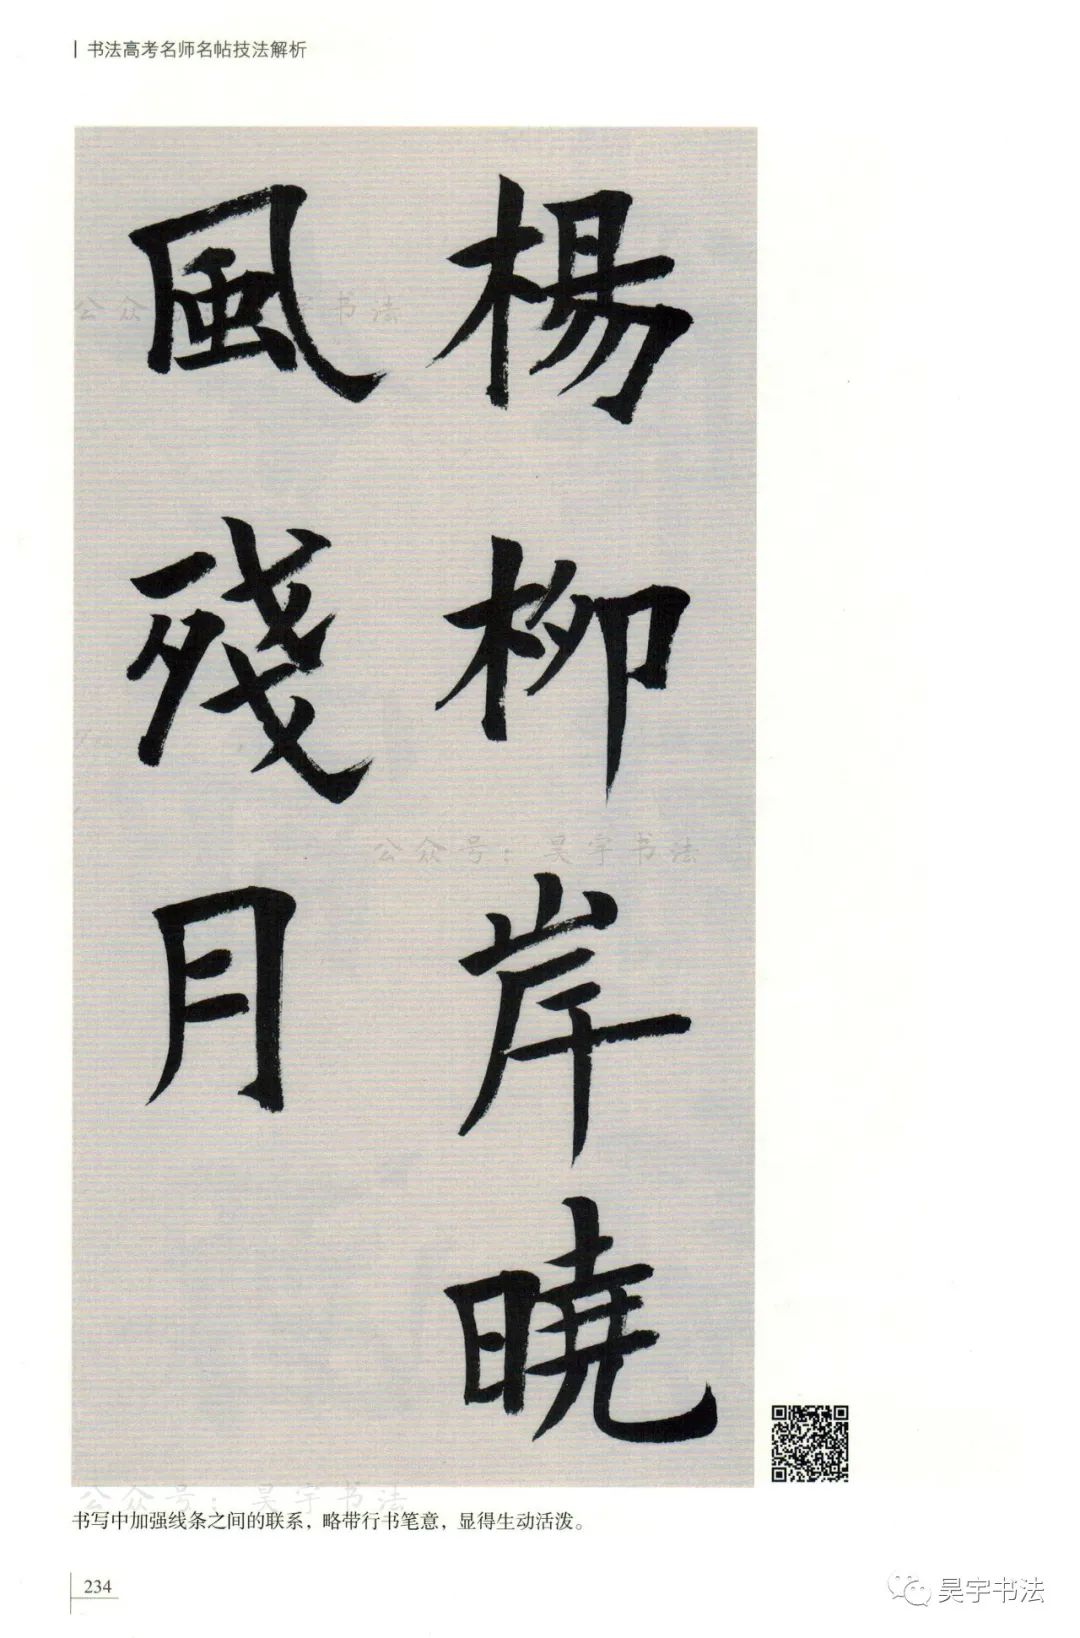 书法高考名师名帖技法解析
楊柳岸曉
風殘月
公众号：昊宇书法
公众号：昊宇书法
公众号：昊宇书法
书写中加强线条之间的联系，略带行书笔意，显得生动活泼。
234
昊宇书法